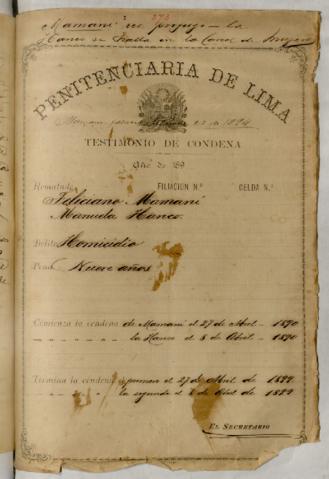 273
Mamani
Hanco se halla en la Carcel de Mujeres
PENITENCIARIA DE LIMA
de 1894
TESTIMONIO DE CONDENA
Año de 189
Rematado FILIACION N.º CELDA N.º
Feliciano Mamani
Manuela Hanco
Delito Homicidio
Pena Nueve años
Comienza la condena de Mamani el 27 de Abril - 1890
la Hanco el 8 de Abril - 1890
Termina la condena primero el 27 de Abril de 1899
la segunda el 8 de Abril de 1899
EL SECRETARIO